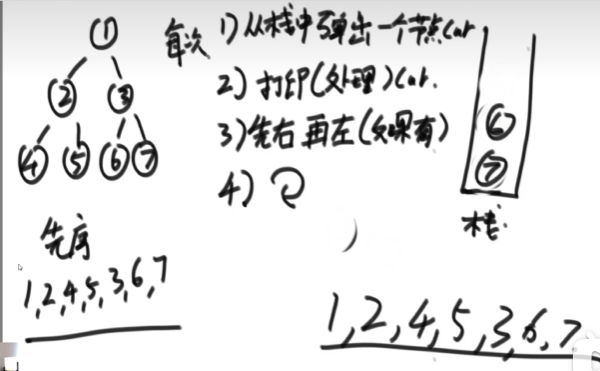 ①
② ③
④ ⑤ ⑥ ⑦
先序
1,2,4,5,3,6,7
每次 1)从栈中弹出一个节点cur
2)打印(处理)cur.
3)先右再左(如果有)
4)
⑥
⑦
栈:
1,2,4,5,3,6,7